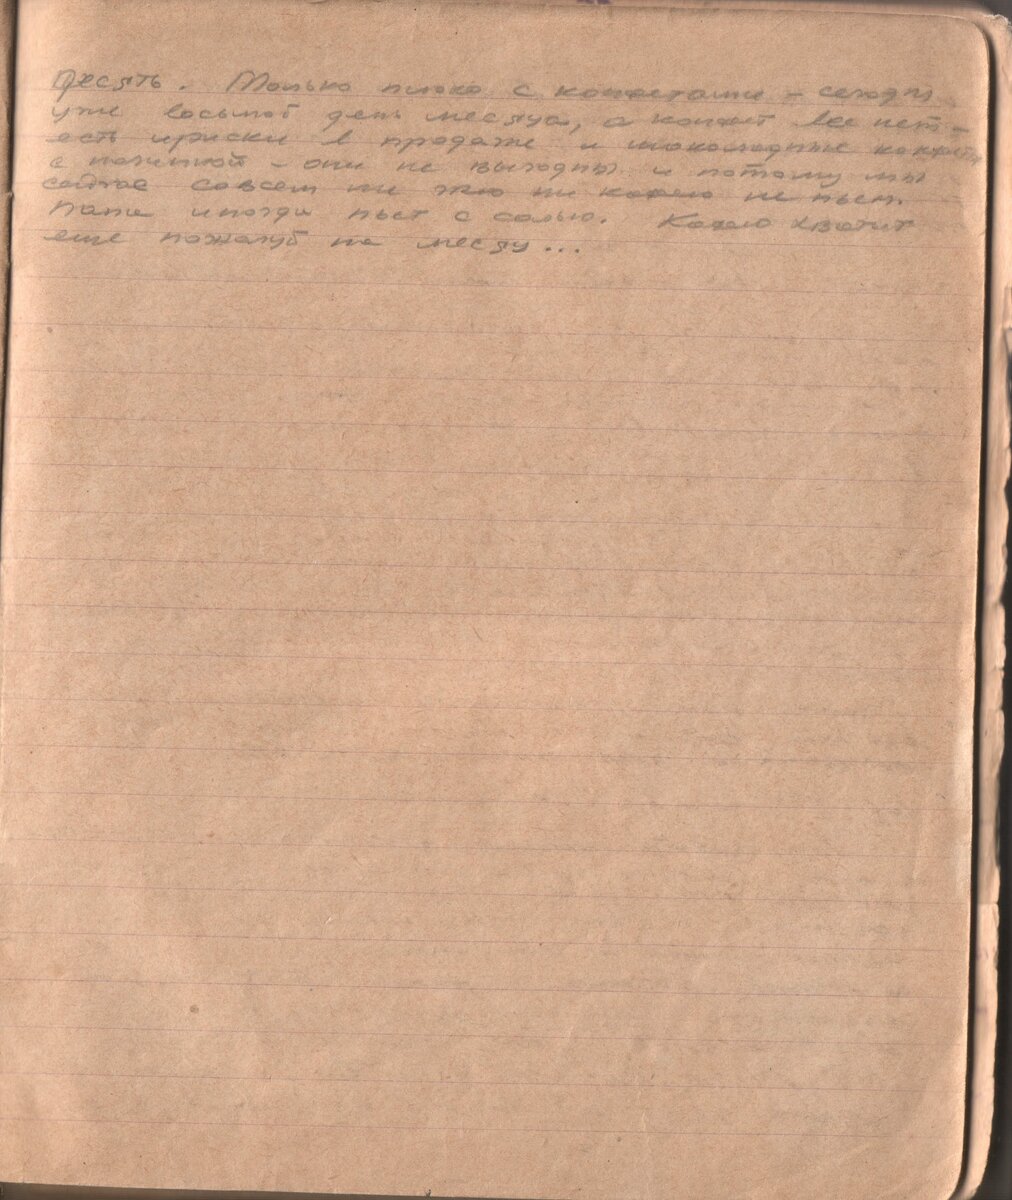 десять. Только плохо с конфетами – сегодня
уже восьмой день месяца, а конфет все нет –
есть ириски в продаже и шоколадные конфеты
с начинкой – они не выгодны и потому мы
сейчас совсем ни ни какао не пьем.
Папа иногда пьет с солью. Какао хватит
еще пожалуй на месяц...